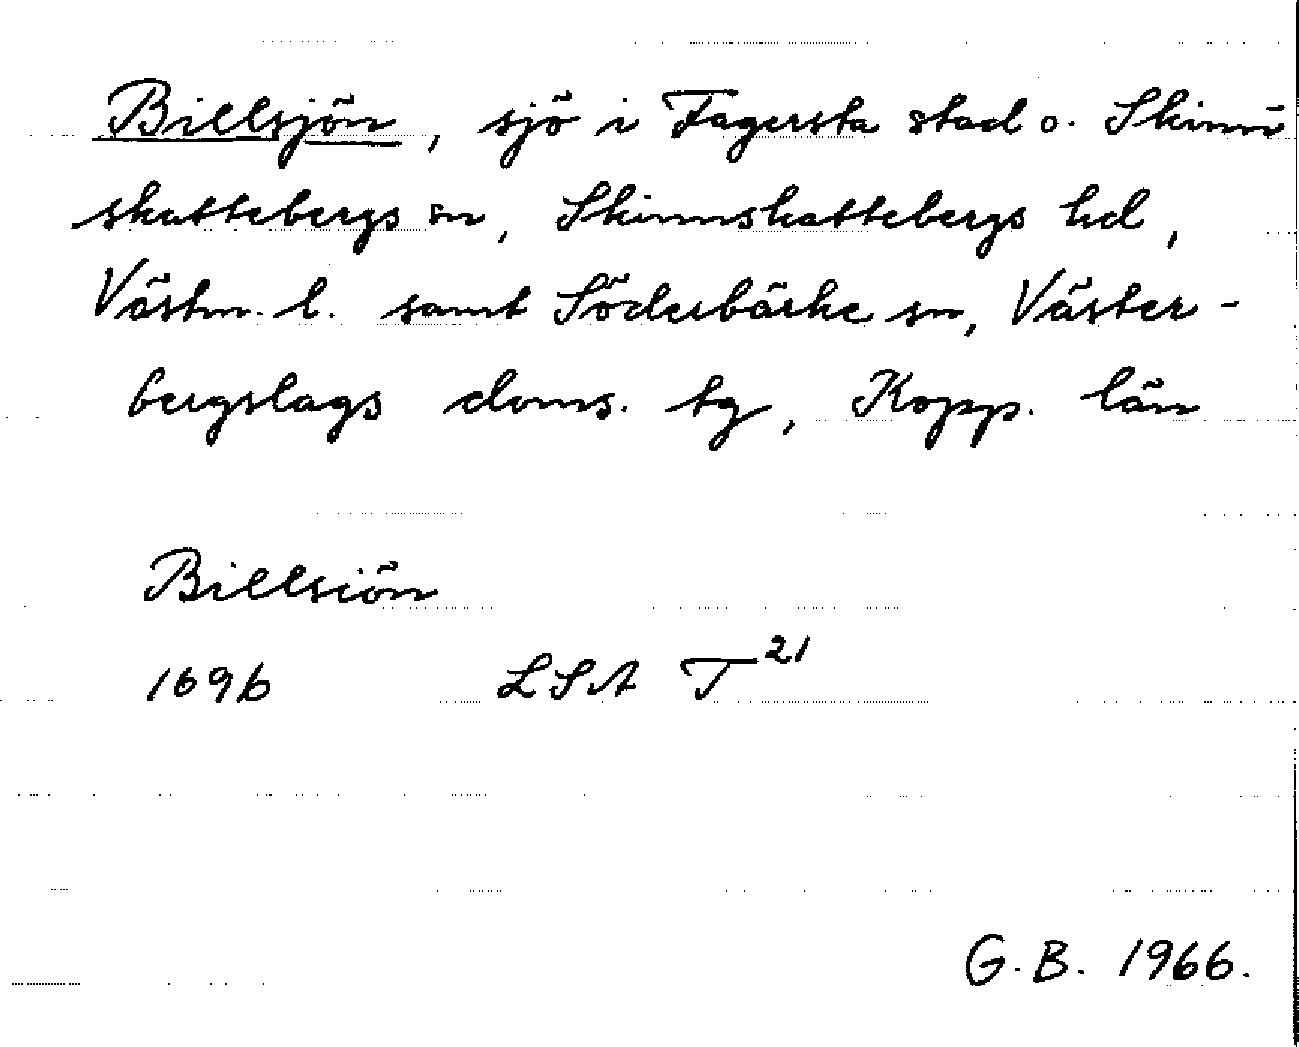 Billsjön, sjö i Fagersta stad o. Skinn-
skattebergs sn, Skinnskattebergs hd,
Västm. l. samt Söderbärke sn, Väster-
bergslags doms. tg, Kopp. län
Billsiön
1696 LSA T21
G.B. 1966.